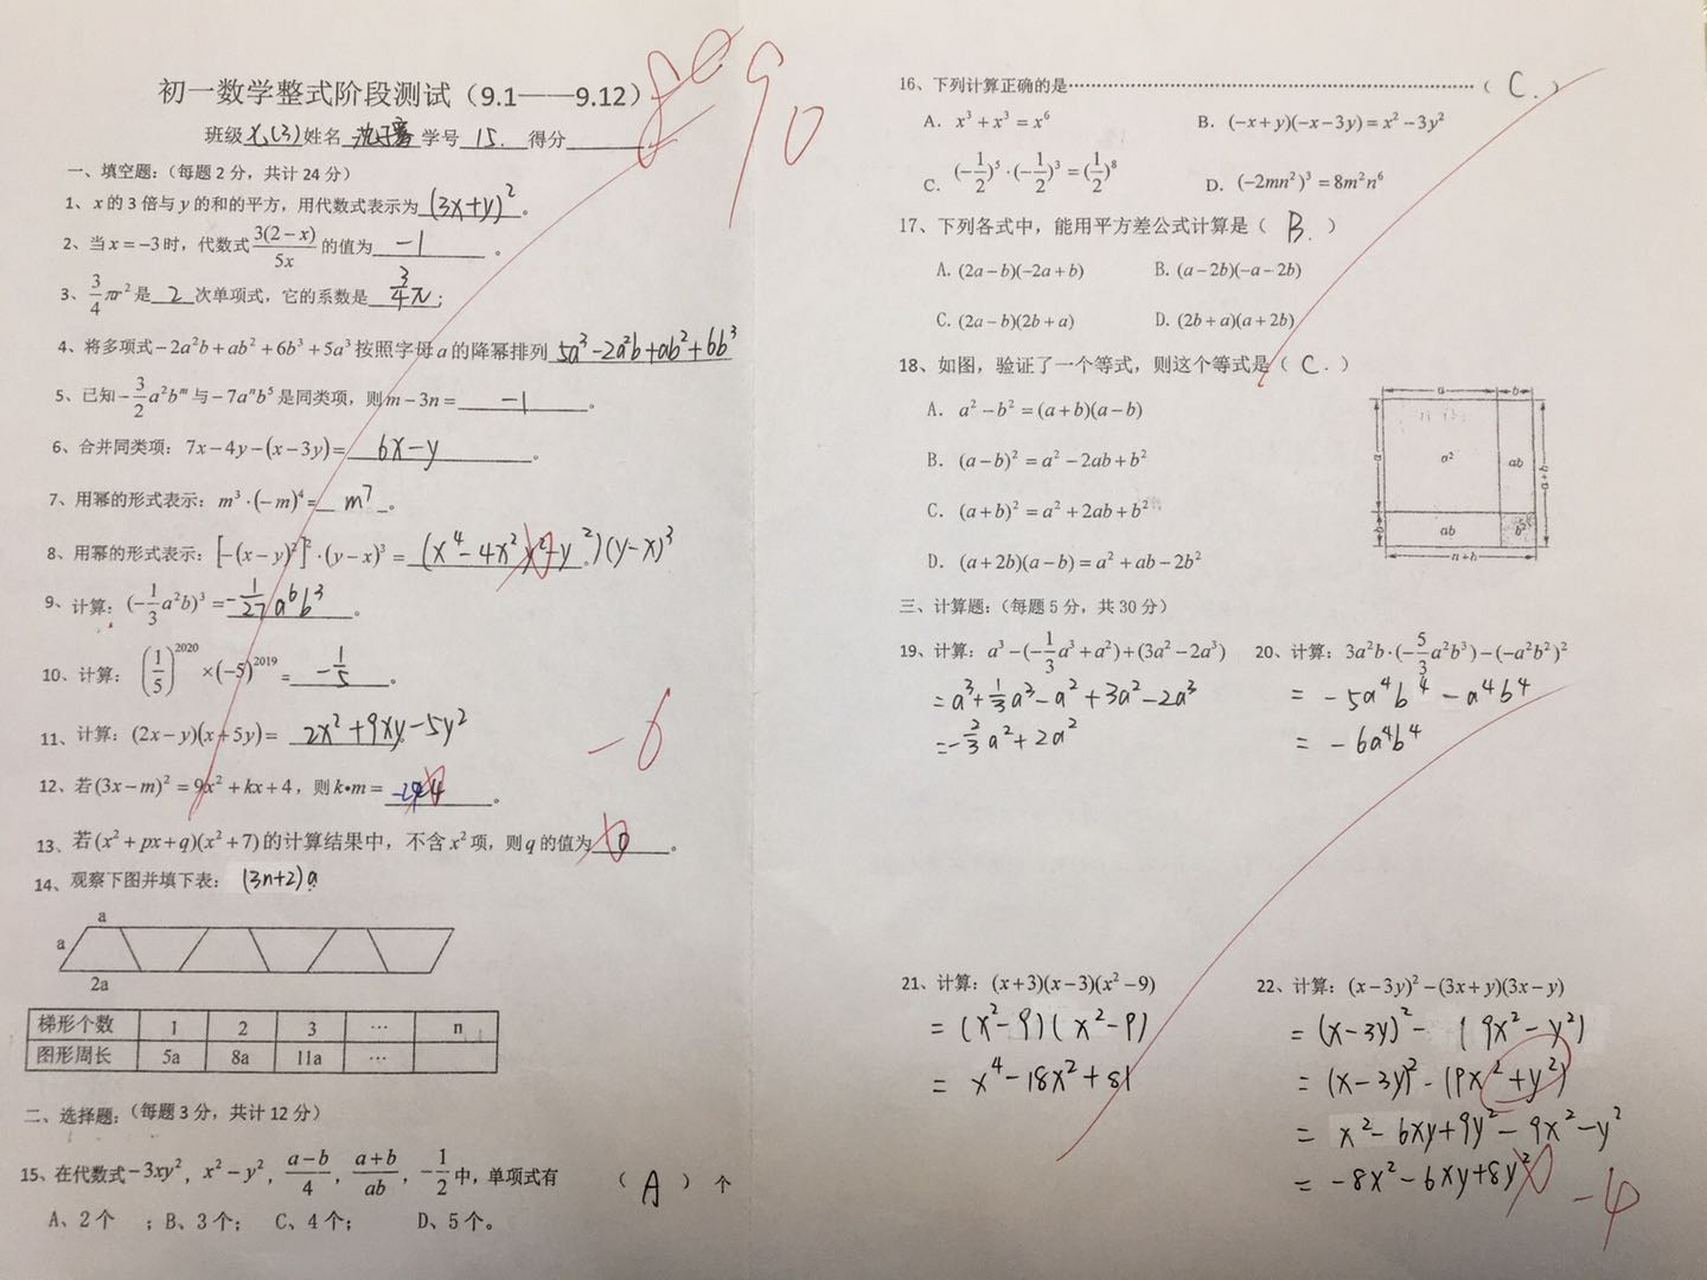 初一数学整式阶段测试（9.1——9.12）
89 90
班级 七(3) 姓名 学号 15. 得分
一、填空题：（每题 2 分，共计 24 分）
1、x 的 3 倍与 y 的和的平方，用代数式表示为 (3x+y)²。
2、当 x=-3 时，代数式 3(2-x)/5x 的值为 -1 。
3、3/4 πr² 是 2 次单项式，它的系数是 3/4 π；
4、将多项式 -2a²b+ab²+6b³+5a³ 按照字母 a 的降幂排列 5a³-2a²b+ab²+6b³
5、已知 -3/2 a²bᵐ 与 -7aⁿb⁵ 是同类项，则 m-3n= -1 。
6、合并同类项：7x-4y-(x-3y)= 6x-y 。
7、用幂的形式表示：m³·(-m)⁴= m⁷ 。
8、用幂的形式表示：[-(x-y)²]²·(y-x)³ = (x⁴-4x²y²+y²)(y-x)³
9、计算：(-1/3 a²b)³ = -1/27 a⁶b³ 。
10、计算：(1/5)²⁰²⁰×(-5)²⁰¹⁹= -1/5 。
11、计算：(2x-y)(x+5y)= 2x²+9xy-5y²
-6
12、若(3x-m)²=9x²+kx+4，则 k•m= 。
13、若(x²+px+q)(x²+7)的计算结果中，不含 x² 项，则 q 的值为 0 。
14、观察下图并填下表： (3n+2)a
a
a
2a
梯形个数 1 2 3 … n
图形周长 5a 8a 11a …
二、选择题：（每题 3 分，共计 12 分）
15、在代数式 -3xy²，x²-y²，(a-b)/4，(a+b)/ab，-1/2 中，单项式有 （ A ）个
A、2 个 ；B、3 个； C、4 个； D、5 个。
16、下列计算正确的是…………（ C. ）
A. x³+x³=x⁶ B. (-x+y)(-x-3y)=x²-3y²
C. (-1/2)⁵·(-1/2)³=(1/2)⁸ D. (-2mn²)³=8m²n⁶
17、下列各式中，能用平方差公式计算是（ B. ）
A. (2a-b)(-2a+b) B. (a-2b)(-a-2b)
C. (2a-b)(2b+a) D. (2b+a)(a+2b)
18、如图，验证了一个等式，则这个等式是（ C. ）
A. a²-b²=(a+b)(a-b)
B. (a-b)²=a²-2ab+b²
C. (a+b)²=a²+2ab+b²
D. (a+2b)(a-b)=a²+ab-2b²
a b
a a² ab a+b
b ab b²
a+b
三、计算题：（每题 5 分，共 30 分）
19、计算：a³-(-1/3 a³+a²)+(3a²-2a³)
=a³+1/3 a³-a²+3a²-2a³
=-2/3 a²+2a²
20、计算：3a²b·(-5/3 a²b³)-(-a²b²)²
= -5a⁴b⁴ - a⁴b⁴
= -6a⁴b⁴
21、计算：(x+3)(x-3)(x²-9)
= (x²-9)(x²-9)
= x⁴-18x²+81
22、计算：(x-3y)²-(3x+y)(3x-y)
= (x-3y)²- (9x²-y²)
= (x-3y)²-(9x²+y²)
= x²-6xy+9y²-9x²-y²
= -8x²-6xy+8y²
-4